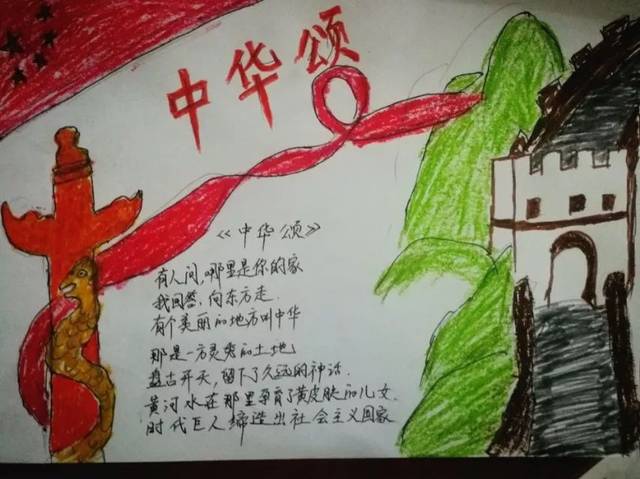 中华颂
《中华颂》
有人问，哪里是你的家
我回答，向东方走
有个美丽的地方叫中华
那是一方灵秀的土地
盘古开天，留下了久远的神话
黄河水在那里孕育了黄皮肤的儿女
时代巨人缔造出社会主义国家